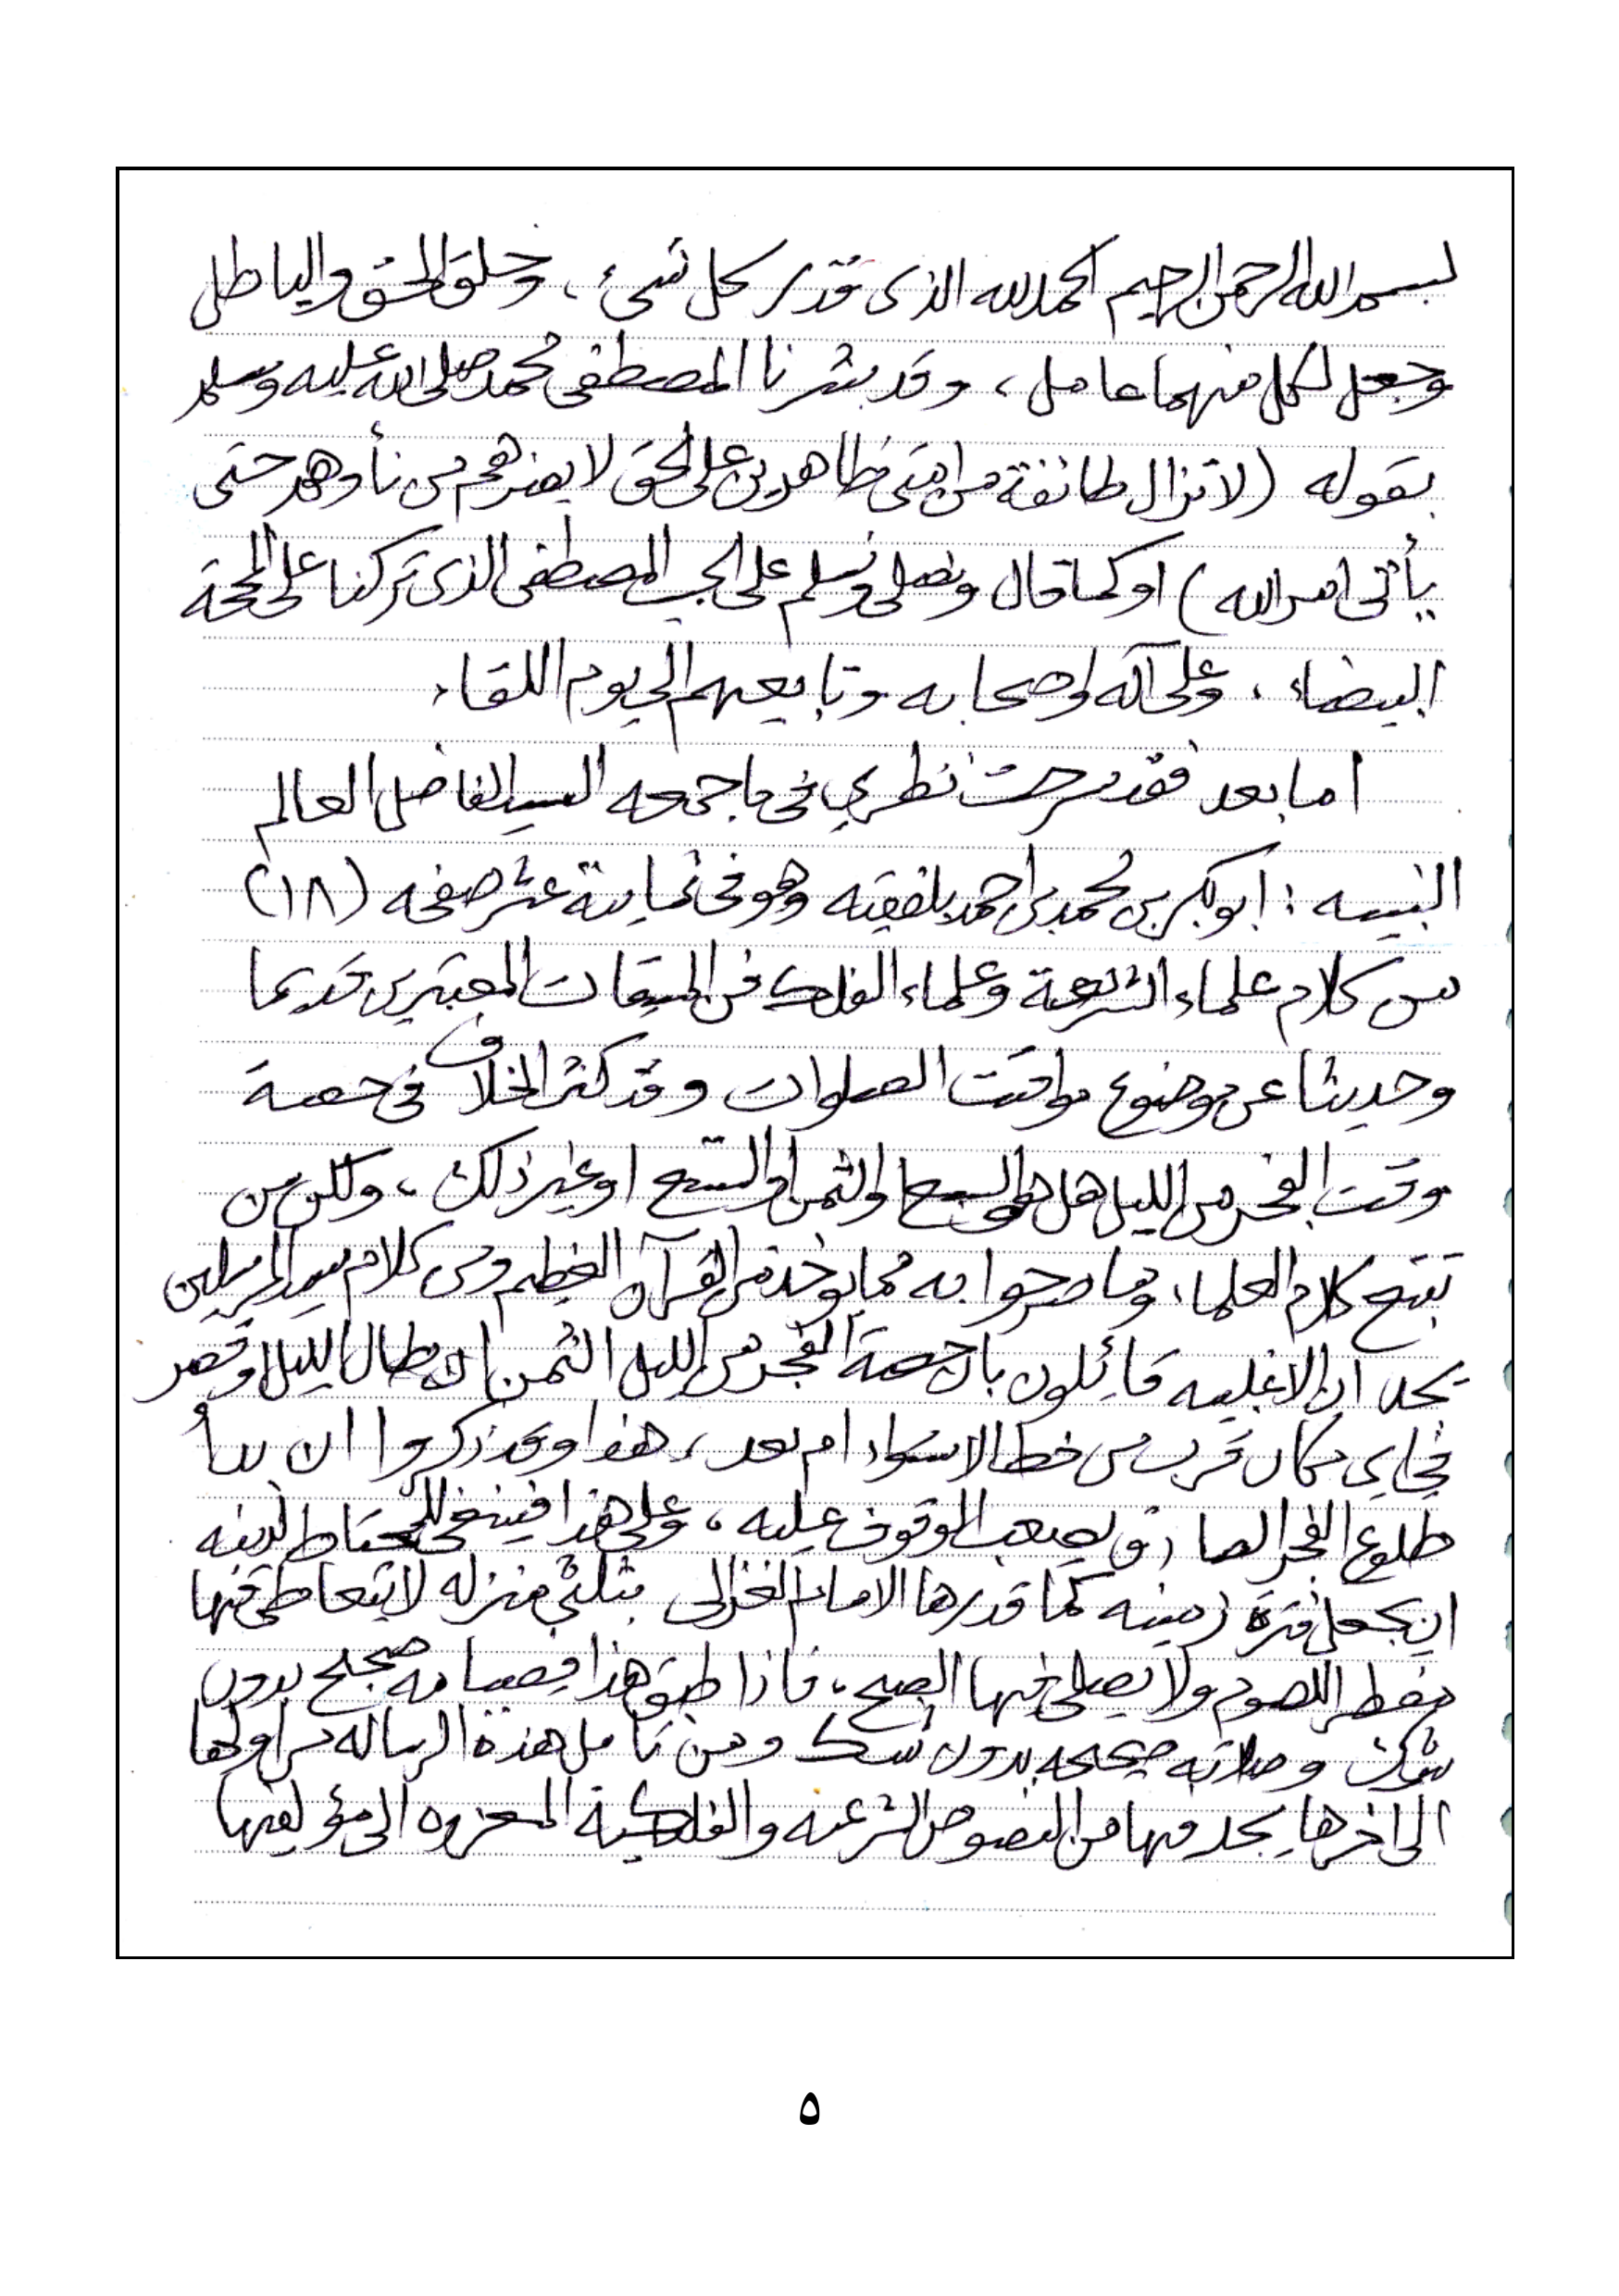 بسم الله الرحمن الرحيم الحمد لله الذى قدر كل شئ ، وخلق الحق والباطل
وجعل لكل منهما عامل ، وقد بشرنا المصطفى محمد صلى الله عليه وسلم
بقوله (لا تزال طائفة من امتى ظاهرين على الحق لا يضرهم من نأوهم حتى
يأتى امر الله) او كما قال ونصلى ونسلم على الحبيب المصطفى الذى تركنا على المحجة
البيضاء ، وعلى آله واصحابه وتابعيهم الى يوم اللقاء
اما بعد فقد سرحت نظري فى ما جمعه السيد الفاضل العالم
النبيه : ابوبكر بن محمد بن احمد بلفقيه وهو فى ثمانية عشر صفحه (١٨)
من كلام علماء الشريعة وعلماء الفلك فى الميقات المعتبرين قديما
وحديثا عن موضوع مواقيت الصلوات وقد كثر الخلاف فى حصة
وقت الفجر من الليل هل هو السبع او الثمن او التسع او غير ذلك ، ولكن من
تتبع كلام العلماء وما صرحوا به مما يؤخذ من القرآن العظيم ومن كلام سيد المرسلين
يجد ان الاغلبيه قائلون بان حصة الفجر من الليل الثمن ان طال الليل او قصر
في اي مكان قرب من خط الاستواء ام بعد ، هذا وقد ذكروا ان بدأ
طلوع الفجر الصادق يصعب الوقوف عليه ، وعلى هذا فينبغى للمحتاط لدينه
ان يجعل فترة زمنيه كما قدرها الامام الغزالى بثلثي منزله لا يتعاطى فيها
مفطر للصوم ولا يصلى فيها الصبح ، فاذا طبق هذا فصيامه صحيح بدون
شك وصلاته صحيحه بدون شك ومن تأمل هذه الرساله من اولها
الى اخرها يجد فيها من النصوص الشرعيه والفلكية المعزوه الى مؤلفيها
٥